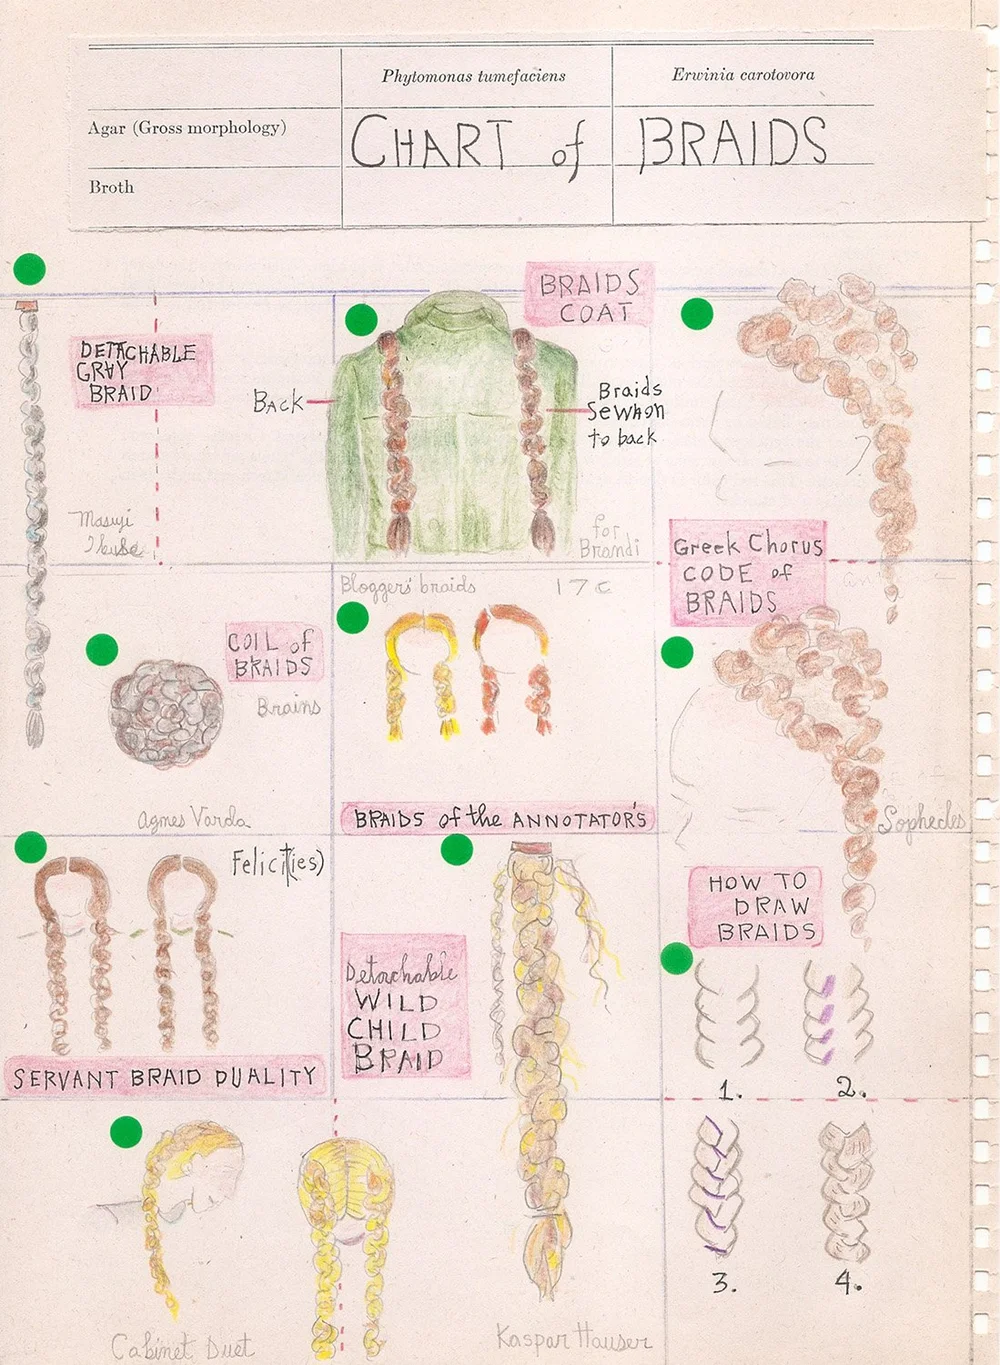 Phytomonas tumefaciens
Erwinia carotovora
Agar (Gross morphology)
CHART of BRAIDS
Broth
DETACHABLE
GRAY
BRAID
Masuji
BRAIDS
COAT
Back
Braids
Sewn on
to back
for
Brandi
Greek Chorus
CODE of
BRAIDS
Sophecles
COIL of
BRAIDS
Brains
Agnes Varda
Bloggers' braids
17c
BRAIDS of the ANNOTATOR'S
Felicit(ies)
SERVANT BRAID DUALITY
Detachable
WILD
CHILD
BRAID
Kaspar Hauser
HOW TO
DRAW
BRAIDS
1.
2.
3.
4.
Cabinet Duet